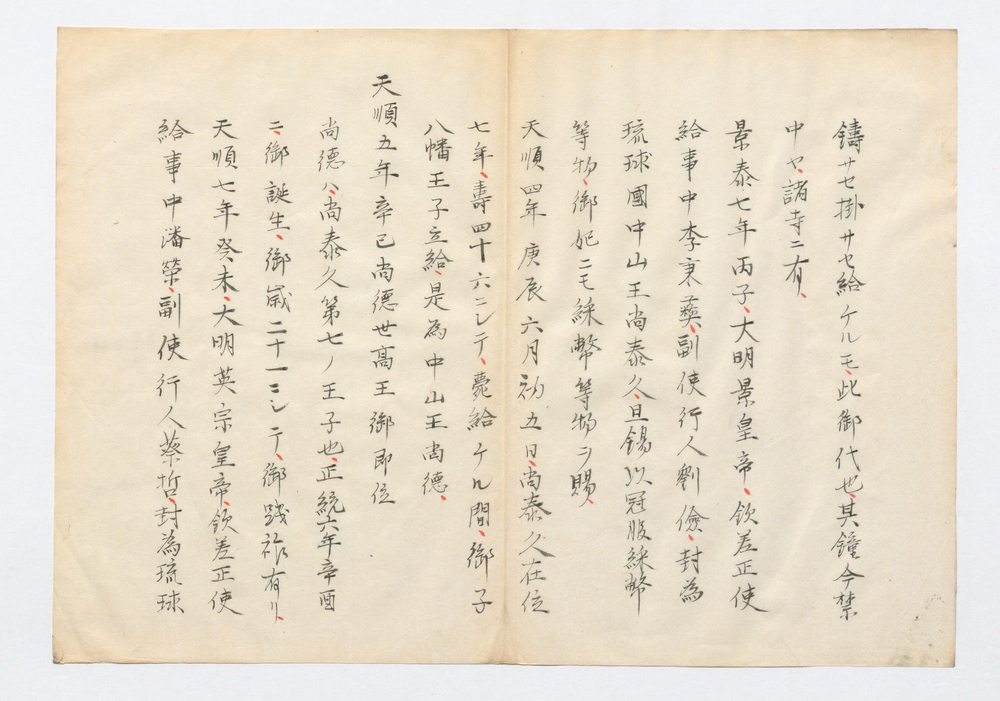 鑄サセ掛サセ給ケルモ、此御代也、其鐘今禁
中ヤ、諸寺ニ有、
景泰七年丙子、大明景皇帝、欽差正使
給事中李秉彜、副使行人劉儉、封為
琉球國中山王尚泰久、且錫以冠服綵幣
等物、御妃ニモ綵幣等物ヲ賜、
天順四年庚辰六月初五日、尚泰久在位
七年、壽四十六ニシテ、薨給ケル間、御子
八幡王子立給、是為中山王尚德、
天順五年辛巳尚德世高王御即位
尚德ハ、尚泰久第七ノ王子也、正統六年辛酉
ニ、御誕生、御歳二十一ニシテ、御踐祚有リ、
天順七年癸未、大明英宗皇帝、欽差正使
給事中潘榮、副使行人蔡哲、封為琉球